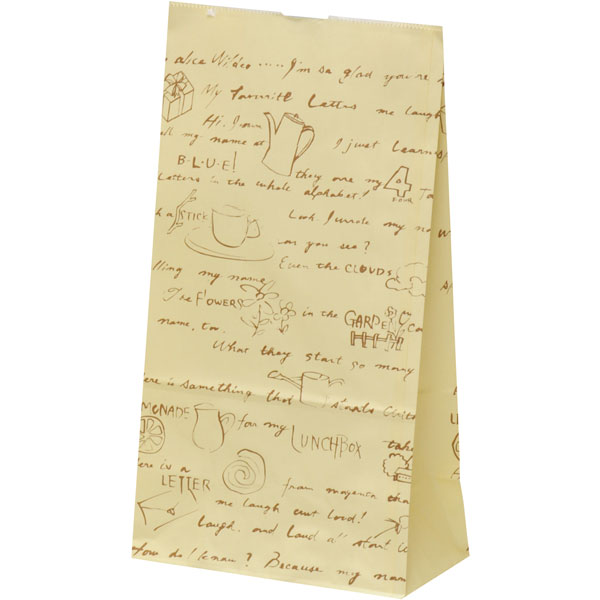 alice Wildo.....I'm so glad you're
My favourite Letters me laugh
Hi. I
my name at I just learns
B-L-U-E!
they are my 4 To
Letters in the whole alphabet!
STICK Look I wrote my na
can you see?
Even the CLOUDS
lling my name
The FLOWERS in the GARDEN Can
name, too.
What they start so many
ere is something that starts
MONADE for my LUNCHBOX take
ere is a
LETTER from magenta tha
me laugh out loud!
laugh. and Loud all start
How do I know? Because my name